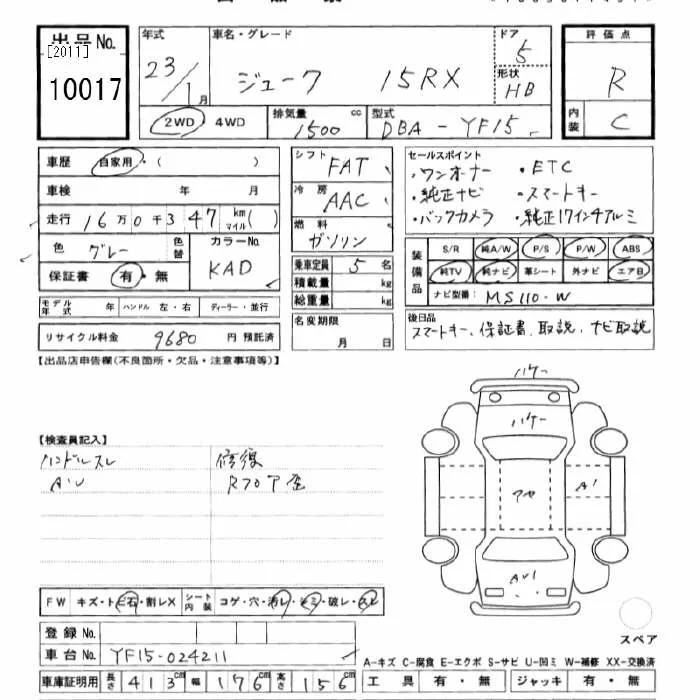 出品No.
[2011]
10017
年式
23/1月
車名・グレード
ジューク 15RX
ドア
5
形状
HB
評価点
R
内装
C
2WD 4WD
排気量 cc
1500
型式
DBA-YF15
車歴 自家用・( )
車検 年 月
走行 16万0千347 km マイル( )
色 グレー 色替
カラーNo.
KAD
保証書 有・無
モデル年式 年 ハンドル 左・右 ディーラー・並行
リサイクル料金 9680 円 預託済
シフト
FAT
冷房
AAC
燃料
ガソリン
乗車定員 5 名
積載量 kg
総重量 kg
名変期限
月 日
セールスポイント
・ワンオーナー ・ETC
・純正ナビ ・スマートキー
・バックカメラ ・純正17インチアルミ
装備品
S/R 純A/W P/S P/W ABS
純TV 純ナビ 革シート 外ナビ エアB
ナビ型番: MS110-W
後日品
スマートキー、保証書、取説、ナビ取説
【出品店申告欄(不良箇所・欠品・注意事項等)】
【検査員記入】
ハンドルスレ
修復
ハケー
ハケー
A1
FW キズ・ト石・割レX
シート内装 コゲ・穴・汚レ・シミ・破レ・スレ
登録No.
車台No. YF15-024211
車庫証明用 長さ 413cm 幅 176cm 高さ 156cm
スペア
A-キズ C-腐食 E-エクボ S-サビ U-凹ミ W-補修 XX-交換済
工具 有・無 ジャッキ 有・無